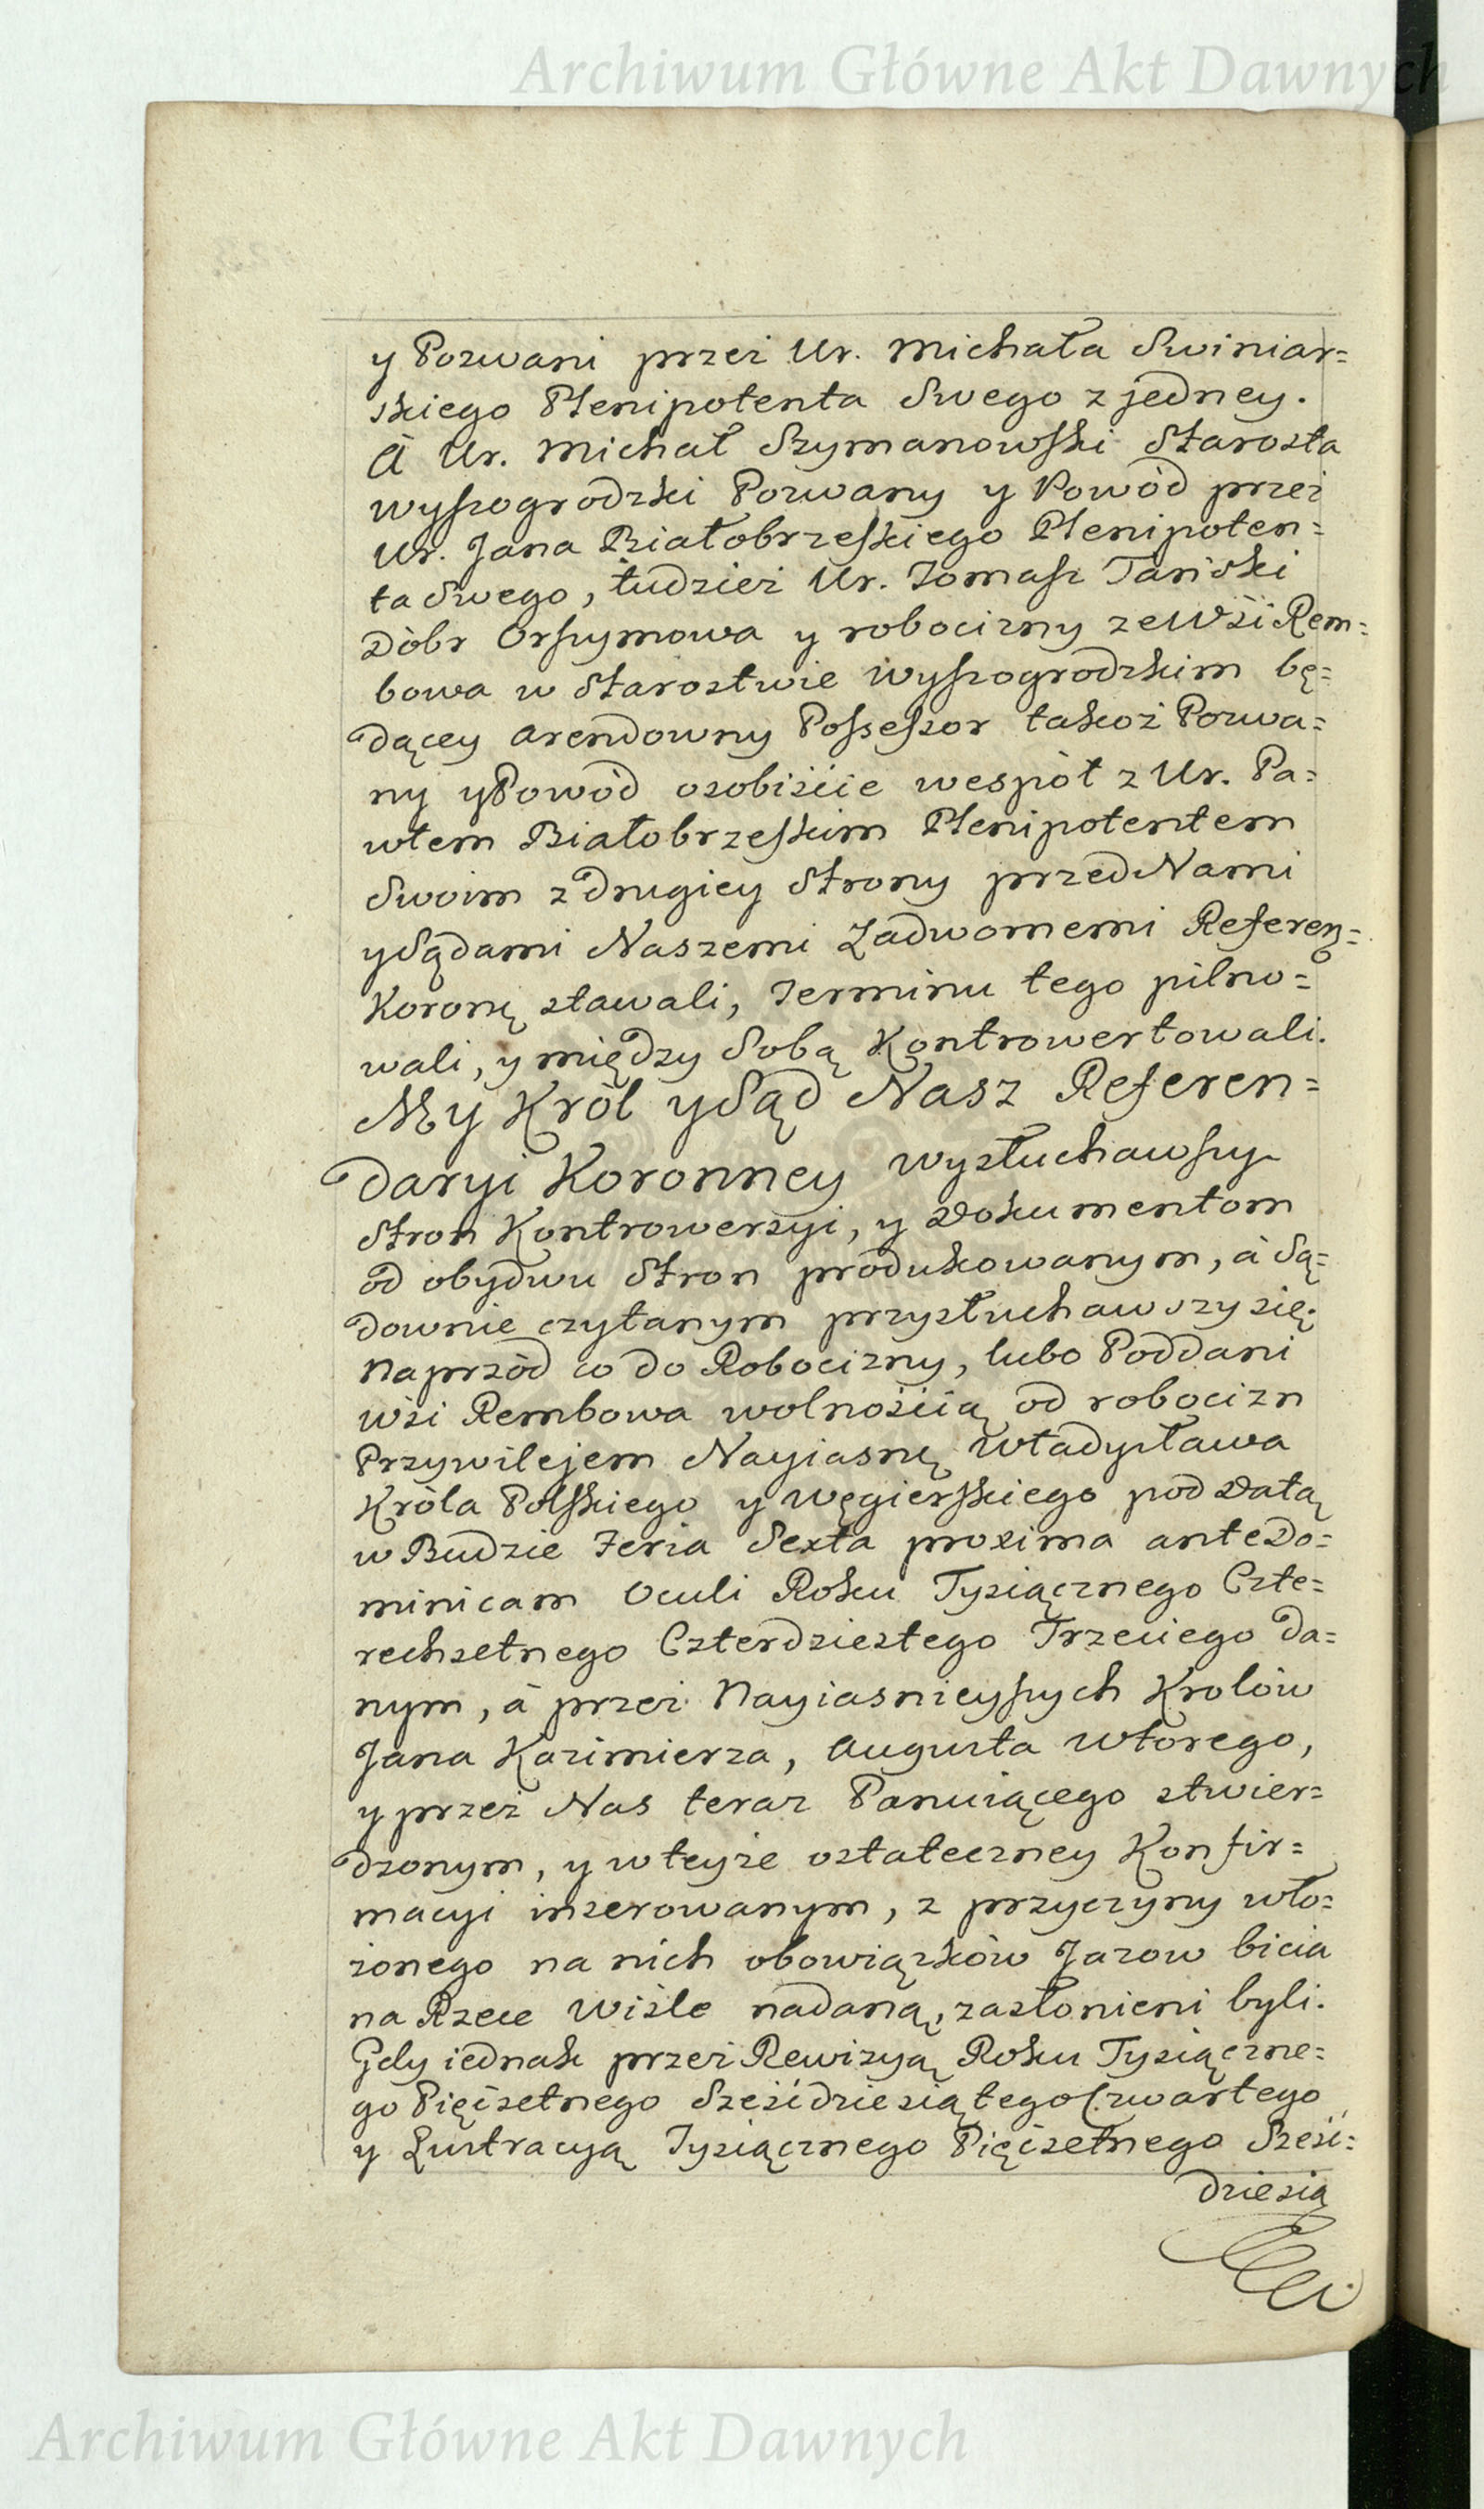 Archiwum Główne Akt Dawnych
y Pozwani przez Ur. Michała Swiniar=
skiego Plenipotenta Swego z jedney.
à Ur. Michał Szymanowski Starosta
wyszogrodzki Pozwany y Powód przez
Ur. Jana Białobrzeskiego Plenipoten=
ta Swego, tudzież Ur. Tomasz Tański
Dóbr Orszymowa y robocizny ze Wsi Rem=
bowa w Starostwie Wyszogrodzkim bę=
dącey arendowny Possessor takoż Pozwa=
ny y Powód osobiście wespół z Ur. Pa=
włem Białobrzeskim Plenipotentem
Swoim z drugiey Strony przed Nami
y Sądami Naszemi Zadwornemi Referen=
Koronę stawali, Terminu tego pilno=
wali, y między Sobą Kontrowertowali.
My Król y Sąd Nasz Referen=
daryi Koronney wysłuchawszy
Stron Kontrowersyi, y Dokumentom
od obydwu Stron produkowanym, à Są=
downie czytanym przysłuchawszy się.
Naprzód co do Robocizny, lubo Poddani
wsi Rembowa wolnością od robocizn
Przywilejem Nayiasnę Władysława
Króla Polskiego y Węgierskiego pod Datą
w Budzie Feria Sexta proxima ante Do=
minicam Oculi Roku Tysiącznego Czte=
rechsetnego Czterdziestego Trzeciego da=
nym, à przez Nayiasnieyszych Krolów
Jana Kazimierza, Augusta Wtorego,
y przez Nas teraz Panuiącego stwier=
dzonym, y w teyże ostateczney Konfir=
macyi inserowanym, z przyczyny wło=
żonego na nich obowiązków Jazow bicia
na Rzece Wiśle nadaną, zasłonieni byli.
Gdy iednak przez Rewizyą Roku Tysiączne=
go Pięćsetnego Sześćdziesiątego Czwartego
y Lustracyą Tysiącznego Pięćsetnego Sześć=
dziesią
Archiwum Główne Akt Dawnych